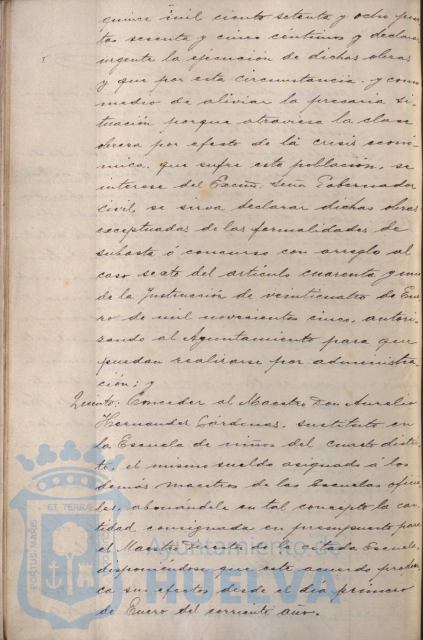 quince mil ciento setenta y ocho pese
tas sesenta y cinco céntimos y declarar
urgente la ejecución de dichas obras
y que por esta circunstancia y como
medio de aliviar la precaria si-
tuación porque atraviesa la clase
obrera por efecto de la crisis econó-
mica que sufre esta población, se
interese del Excmo. Señor Gobernador
civil, se sirva declarar dichas obras
exceptuadas de las formalidades de
subasta ó concurso con arreglo al
caso sexto del artículo cuarenta y uno
de la Instrucción de veinticuatro de Ene
ro de mil novecientos cinco, autori-
zando al Ayuntamiento para que
puedan realizarse por administra
ción; y
Quinto: Conceder al Maestro Don Aurelio
Hernandez Cárdenas, sustituto en
la Escuela de niños del cuarto distri-
to, el mismo sueldo asignado á los
demás maestros de las Escuelas oficia-
les, abonándole en tal concepto la can
tidad consignada en presupuesto para
el Maestro de la citada Escuela,
disponiéndose que este acuerdo produz
ca sus efectos desde el día primero
de Enero del corriente año.
PORTUS MARIS ET TERRAE
Ayuntamiento de
HUELVA